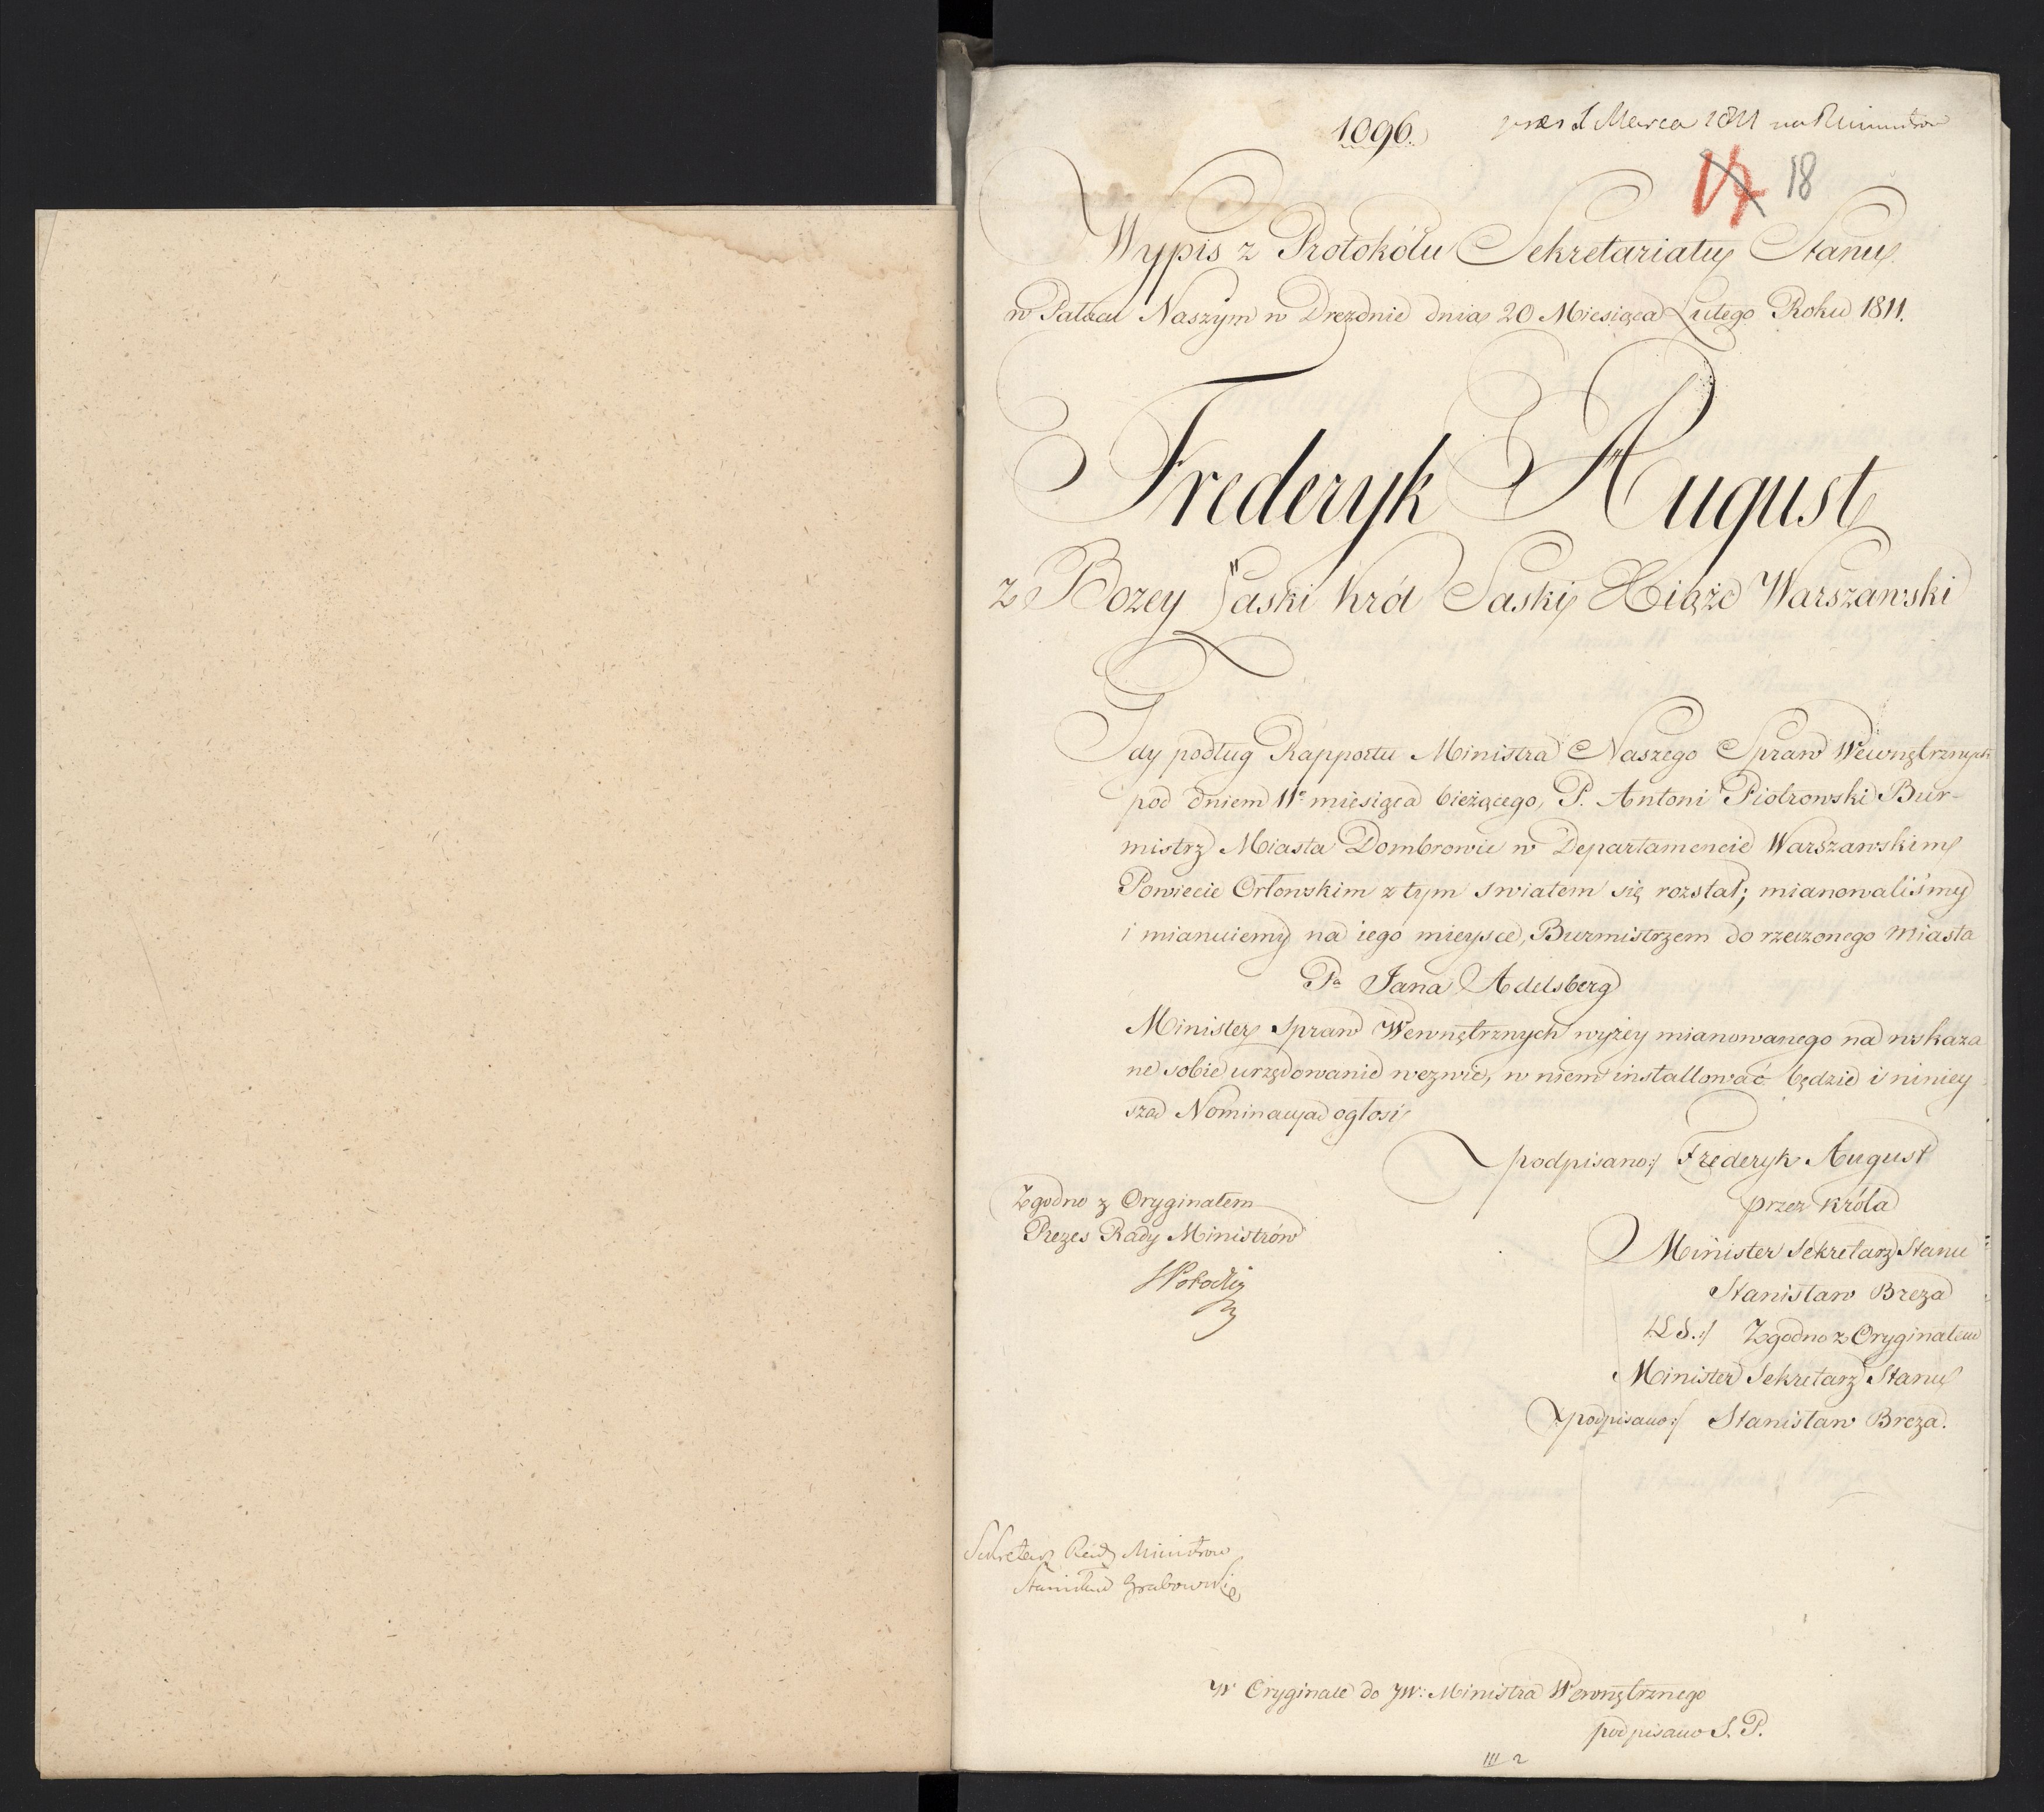 1096.
1 Marca 1811 na
17 18
Wypis z Protokółu Sekretariatu Stanu
w Pałacu Naszym w Dreznie dnia 20 Miesiąca Lutego Roku 1811.
Frederyk August
z Bozey Łaski Król Saski Xiąże Warszawski
Gdy podług Rapportu Ministra Naszego Spraw Wewnętrznych
pod dniem 11º miesiąca bieżącego, P. Antoni Piotrowski Bur-
mistrz Miasta Dombrowic w Departamencie Warszawskim
Powiecie Orłowskim z tym swiatem się rozstał; mianowaliśmy
i mianuiemy na iego mieysce, Burmistrzem do rzeczonego Miasta
Pa Jana Adelsberg
Minister Spraw Wewnętrznych wyżey mianowanego na wskaza
ne sobie urzędowanie wezwie, w niem installować będzie i niniey
sza Nominacyą ogłosi
podpisano:/ Frederyk August
przez Króla
Zgodno z Oryginałem
Prezes Rady Ministrów
Minister Sekretarz Stanu
Stanisław Breza
/LS./ Zgodno z Oryginałem
Minister Sekretarz Stanu
podpisano:/ Stanisław Breza.
Sekretarz Rady Ministrow
Stanisław Grabowski
W Oryginale do JW: Ministra Wewnętrznego
podpisano S. P.
III 2